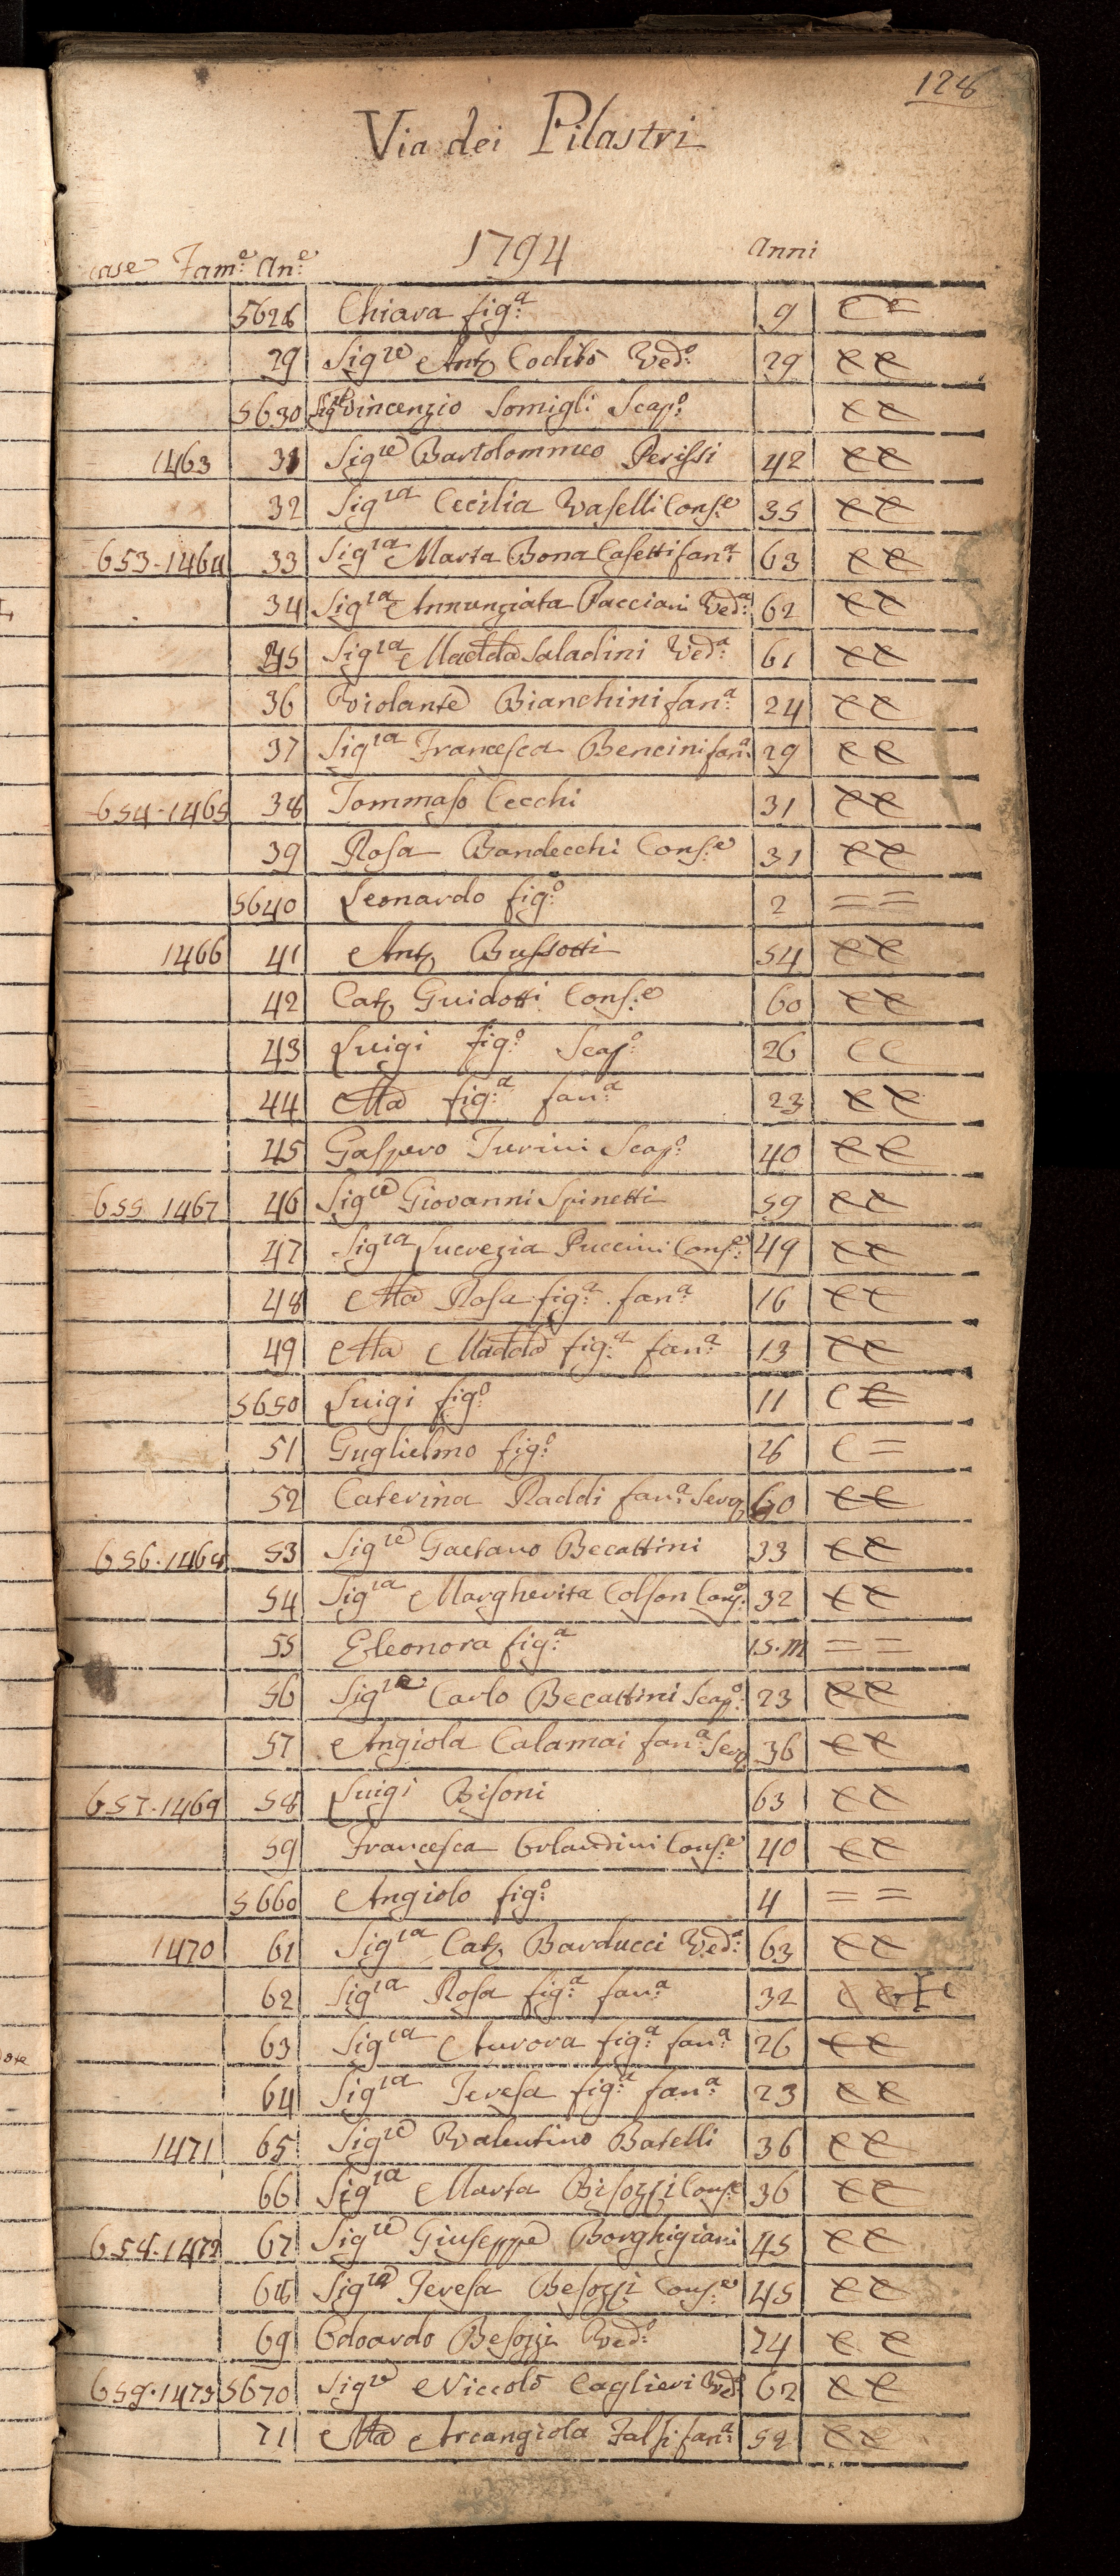 128
Via dei Pilastri
case Fam.e An.e 1794 Anni
5628 Chiara fig.a 9
29 Sig.re Ant.o Codibò Ved.o 29
5630 Sig.re Vincenzio Somigli Scap.o
1463 31 Sig.re Bartolommeo Perissi 42
32 Sig.ra Cecilia Vaselli Cons.e 35
653-1464 33 Sig.ra Marta Bona Casetti fan.a 63
34 Sig.ra Annunziata Pacciani Ved.a 62
35 Sig.ra Madd.a Saladini Ved.a 61
36 Violante Bianchini fan.a 24
37 Sig.ra Francesca Bencini fan.a 29
654-1465 38 Tommaso Cecchi 31
39 Rosa Bandecchi Cons.e 31
5640 Leonardo fig.o 2 = =
1466 41 Ant.o Bussotti 54
42 Cat.a Guidotti Cons.e 60
43 Luigi fig.o Scap.o 26 C C
44 Ma fig.a fan.a 23
45 Gaspero Turini Scap.o 40
655 1467 46 Sig.re Giovanni Spinetti 59
47 Sig.ra Lucrezia Puccini Cons.e 49
48 Ma Rosa fig.a fan.a 16
49 Ma Madd.a fig.a fan.a 13
5650 Luigi fig.o 11
51 Guglielmo fig.o 8 C =
52 Caterina Raddi fan.a Serv.a 60
656-1468 53 Sig.re Gaetano Becattini 33
54 Sig.ra Margherita Colson Cons.e 32
55 Eleonora fig.a 15.m = =
56 Sig.re Carlo Becattini Scap.o 23
57 Angiola Calamai fan.a Serv.a 36
657-1469 58 Luigi Bisoni 63
59 Francesca Orlandini Cons.e 40
5660 Angiolo fig.o 4 = =
1470 61 Sig.ra Cat.a Barducci Ved.a 63
62 Sig.ra Rosa fig.a fan.a 32
63 Sig.ra Aurora fig.a fan.a 26
64 Sig.ra Teresa fig.a fan.a 23
1471 65 Sig.re Valentino Batelli 36
66 Sig.ra Marta Bisozzi Cons.e 36
658-1472 67 Sig.re Giuseppe Borghigiani 45
68 Sig.ra Teresa Besozzi Cons.e 45
69 Odoardo Besozzi Ved.o 74
659-1473 5670 Sig.re Niccolò Caglieri Ved.o 62
71 Ma Arcangiola Falsi fan.a 52